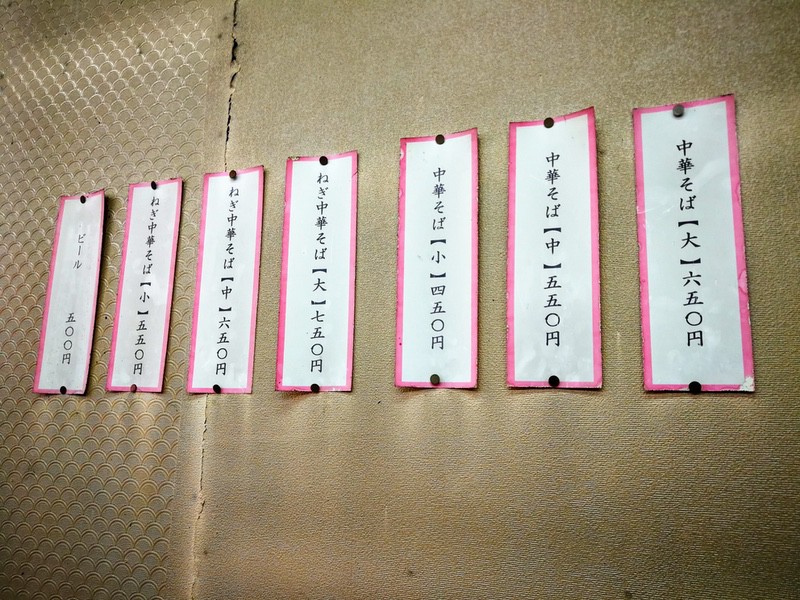 中華そば【大】六五〇円
中華そば【中】五五〇円
中華そば【小】四五〇円
ねぎ中華そば【大】七五〇円
ねぎ中華そば【中】六五〇円
ねぎ中華そば【小】五五〇円
ビール 五〇〇円